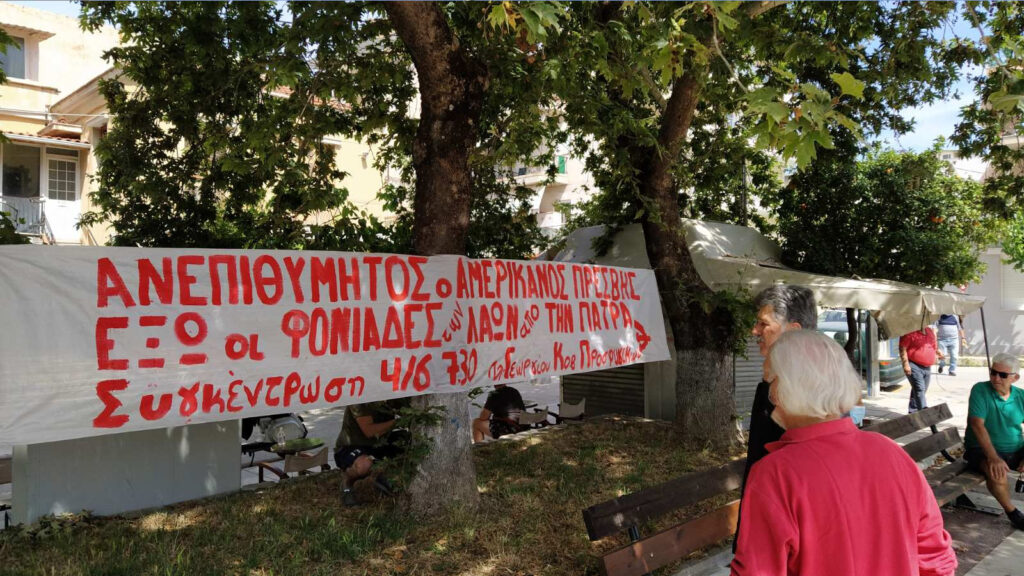 ΑΝΕΠΙΘΥΜΗΤΟΣ ο ΑΜΕΡΙΚΑΝΟΣ ΠΡΕΣΒΗΣ
ΕΞΩ οι ΦΟΝΙΑΔΕΣ των ΛΑΩΝ από ΤΗΝ ΠΑΤΡΑ
Συγκέντρωση 4/6 7.30 Πλ. Γεωργίου